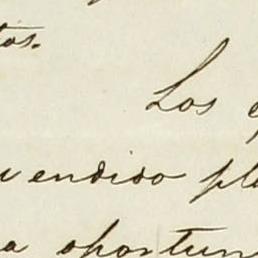 tos.
Los
endido pla
a oportun